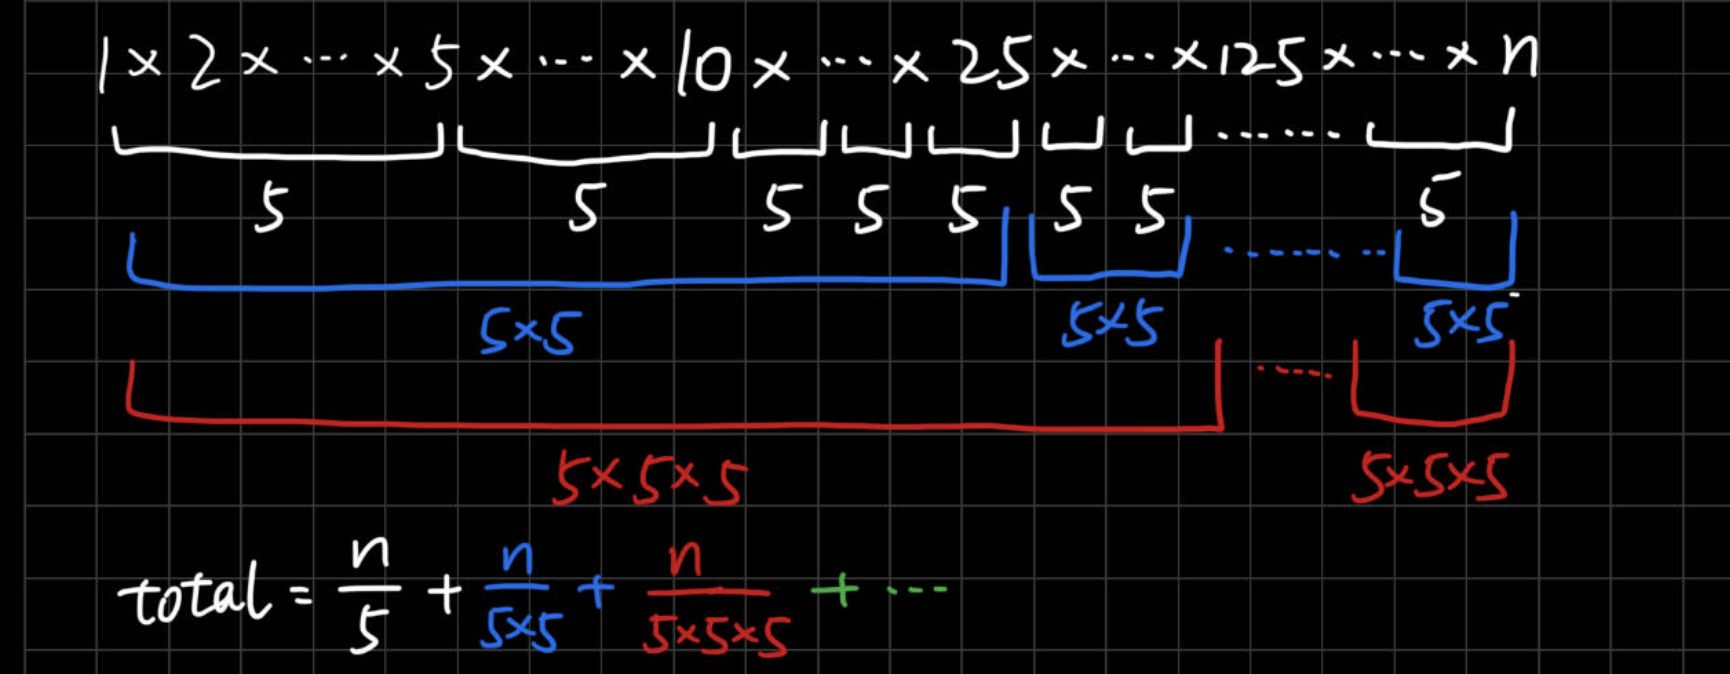 1 × 2 × ... × 5 × ... × 10 × ... × 25 × ... × 125 × ... × n
5 5 5 5 5 5 5 ...... 5
5×5 5×5 ...... 5×5
5×5×5 ...... 5×5×5
total = n/5 + n/5×5 + n/5×5×5 + ...